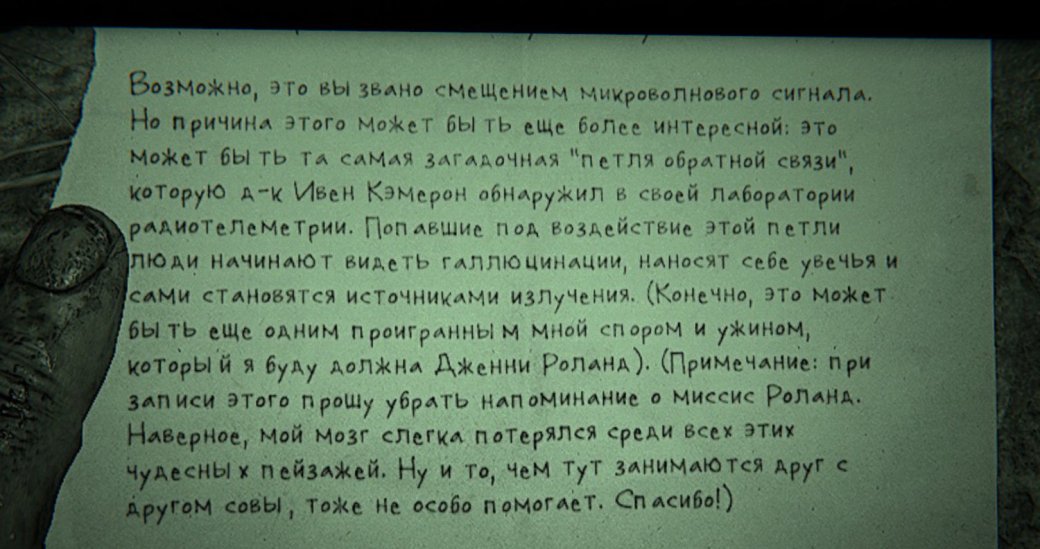 Возможно, это вызвано смещением микроволнового сигнала.
Но причина этого может быть еще более интересной: это
может быть та самая загадочная "петля обратной связи",
которую д-к Ивен Кэмерон обнаружил в своей лаборатории
радиотелеметрии. Попавшие под воздействие этой петли
люди начинают видеть галлюцинации, наносят себе увечья и
сами становятся источниками излучения. (Конечно, это может
быть еще одним проигранным мной спором и ужином,
который я буду должна Дженни Роланд). (Примечание: при
записи этого прошу убрать напоминание о миссис Роланд.
Наверное, мой мозг слегка потерялся среди всех этих
чудесных пейзажей. Ну и то, чем тут занимаются друг с
другом совы, тоже не особо помогает. Спасибо!)